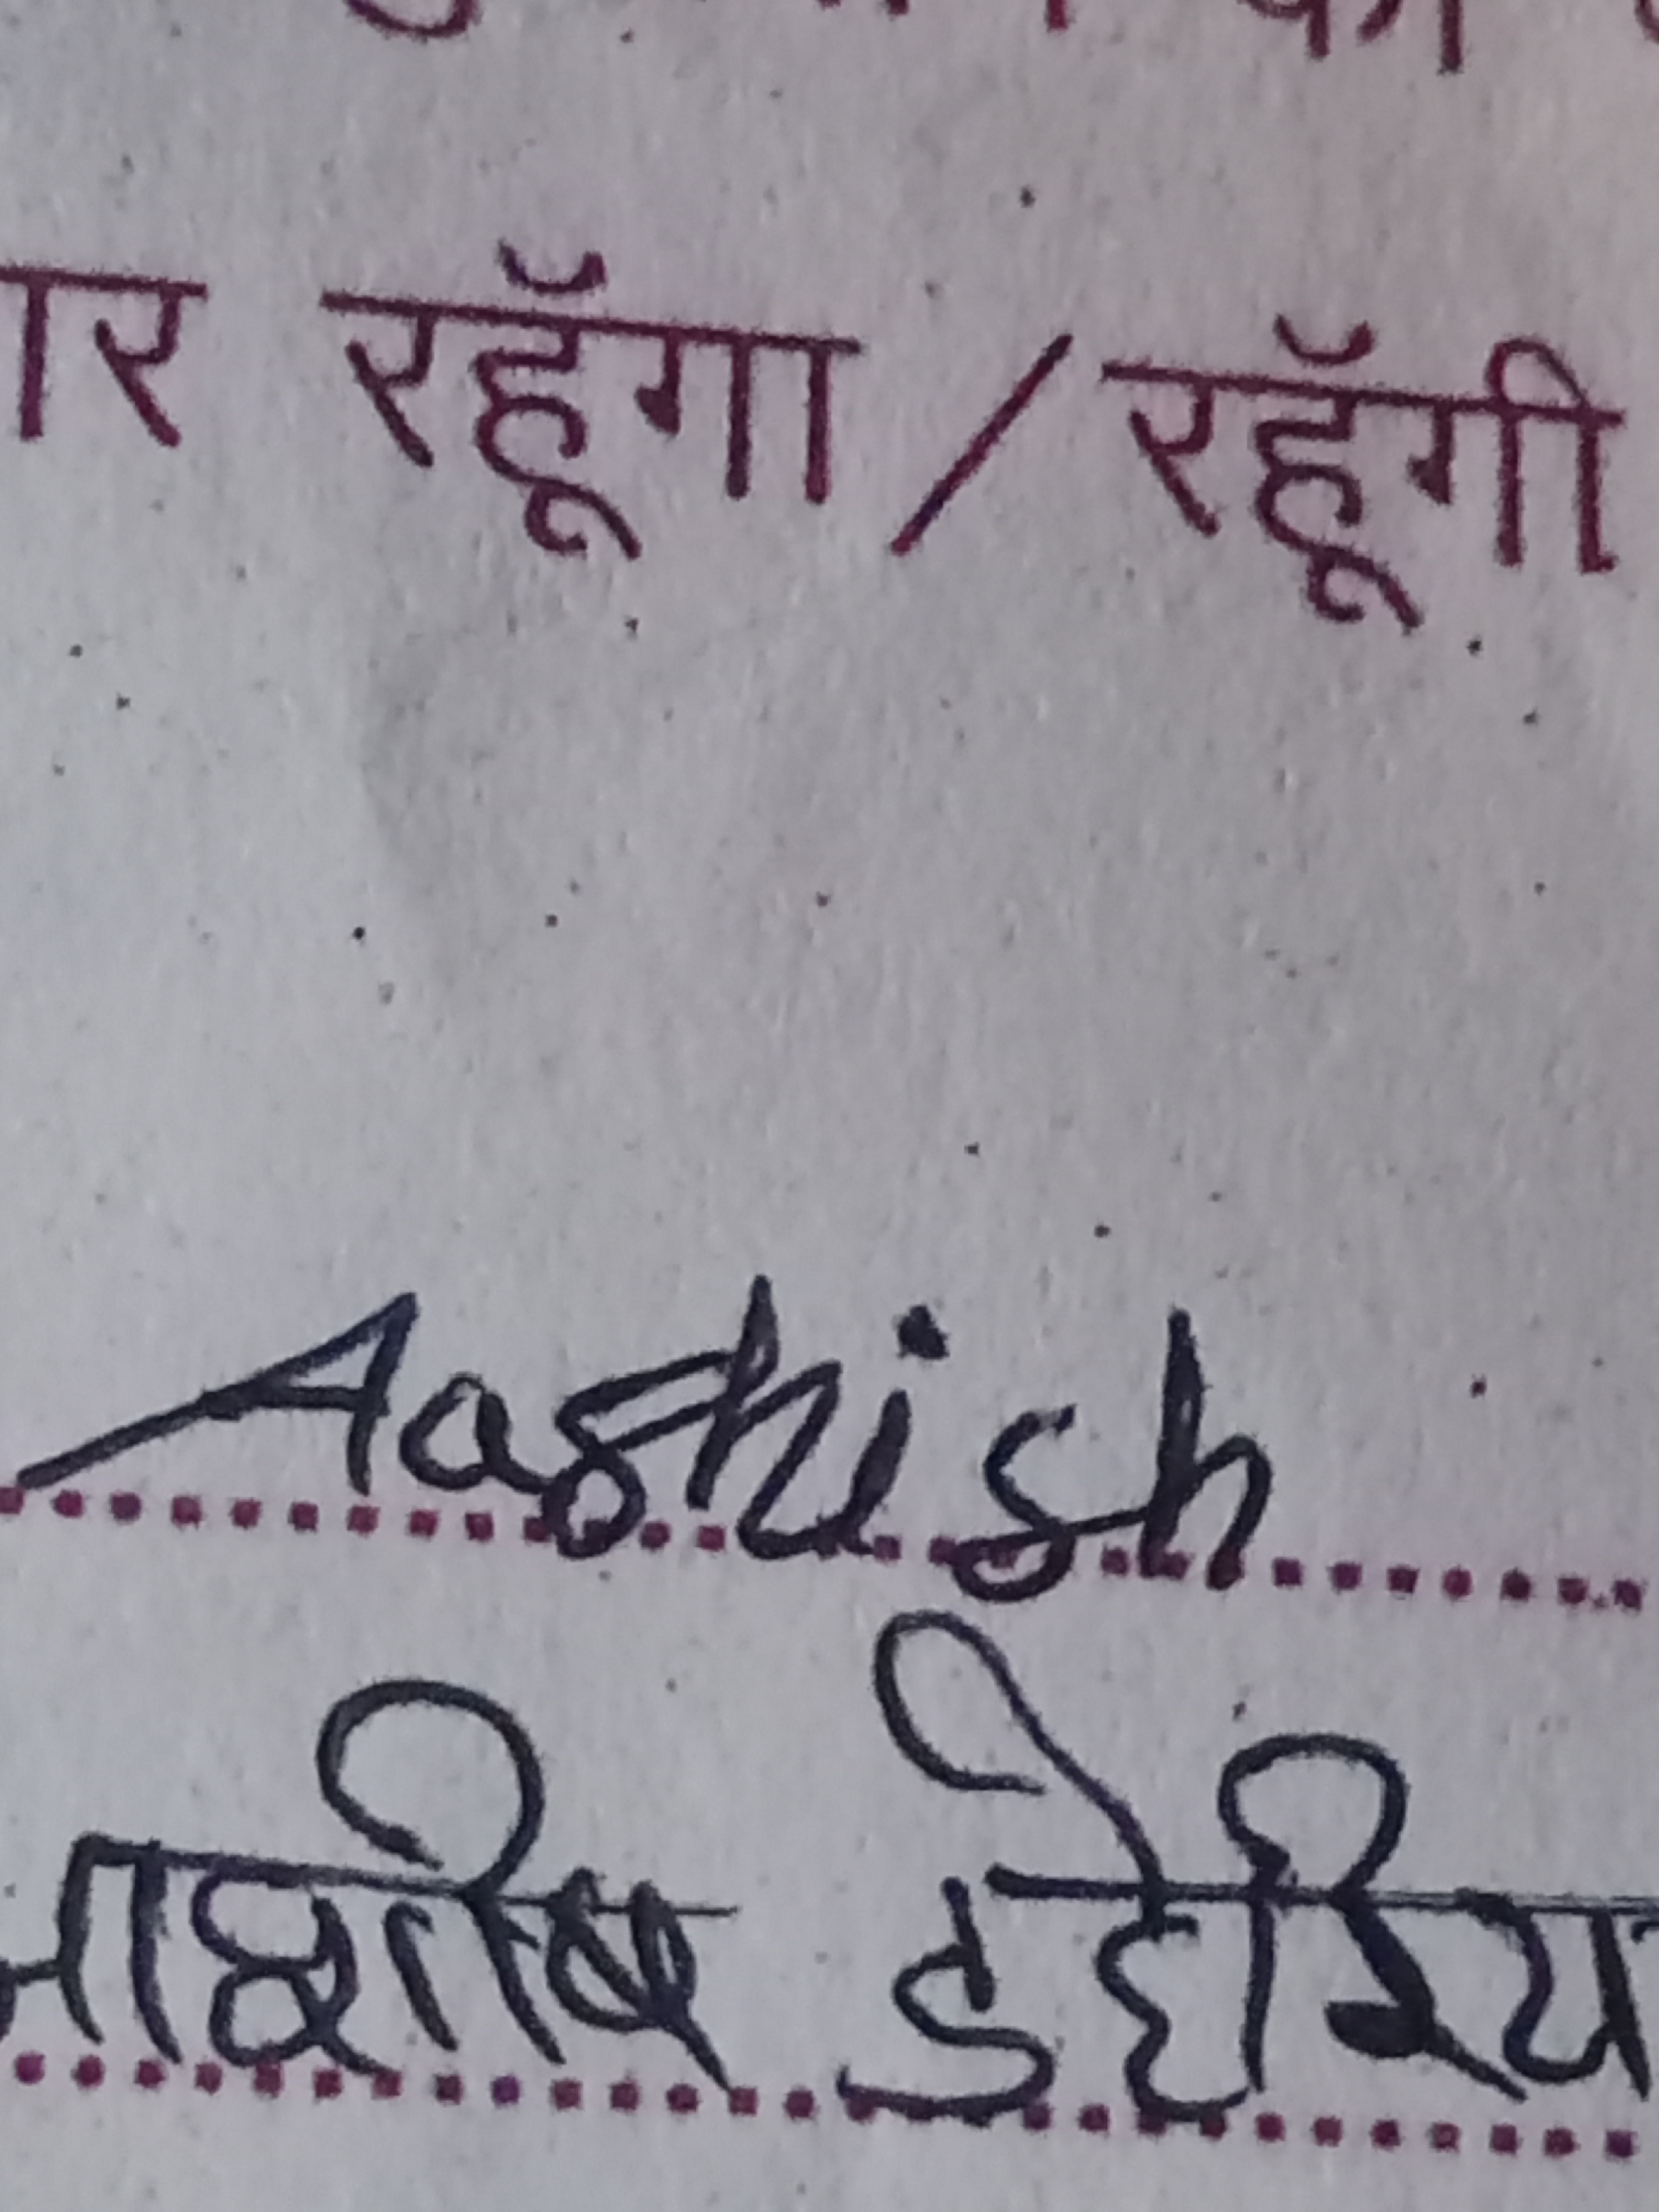 की
ार रहूँगा / रहूँगी
Aashish
आशीष डेहरिय